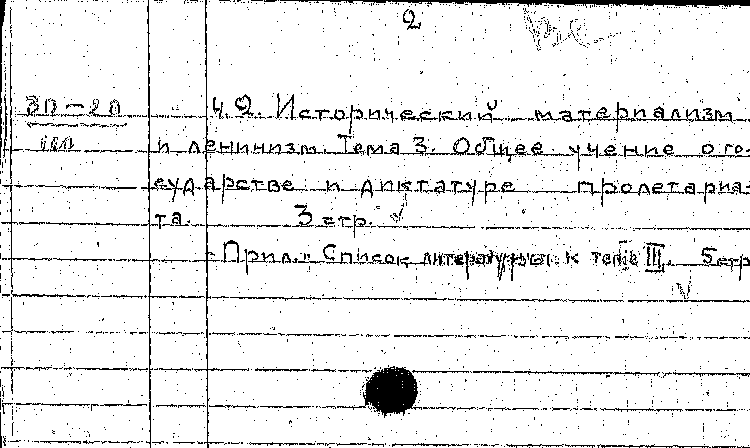 2
3п-2п ч.2. Исторический материализм
и ленинизм. Тема 3. Общее учение о го-
сударстве и диктатуре пролетариа-
та. 3 стр.
Прил.: Список литературы к теме III. 5 стр